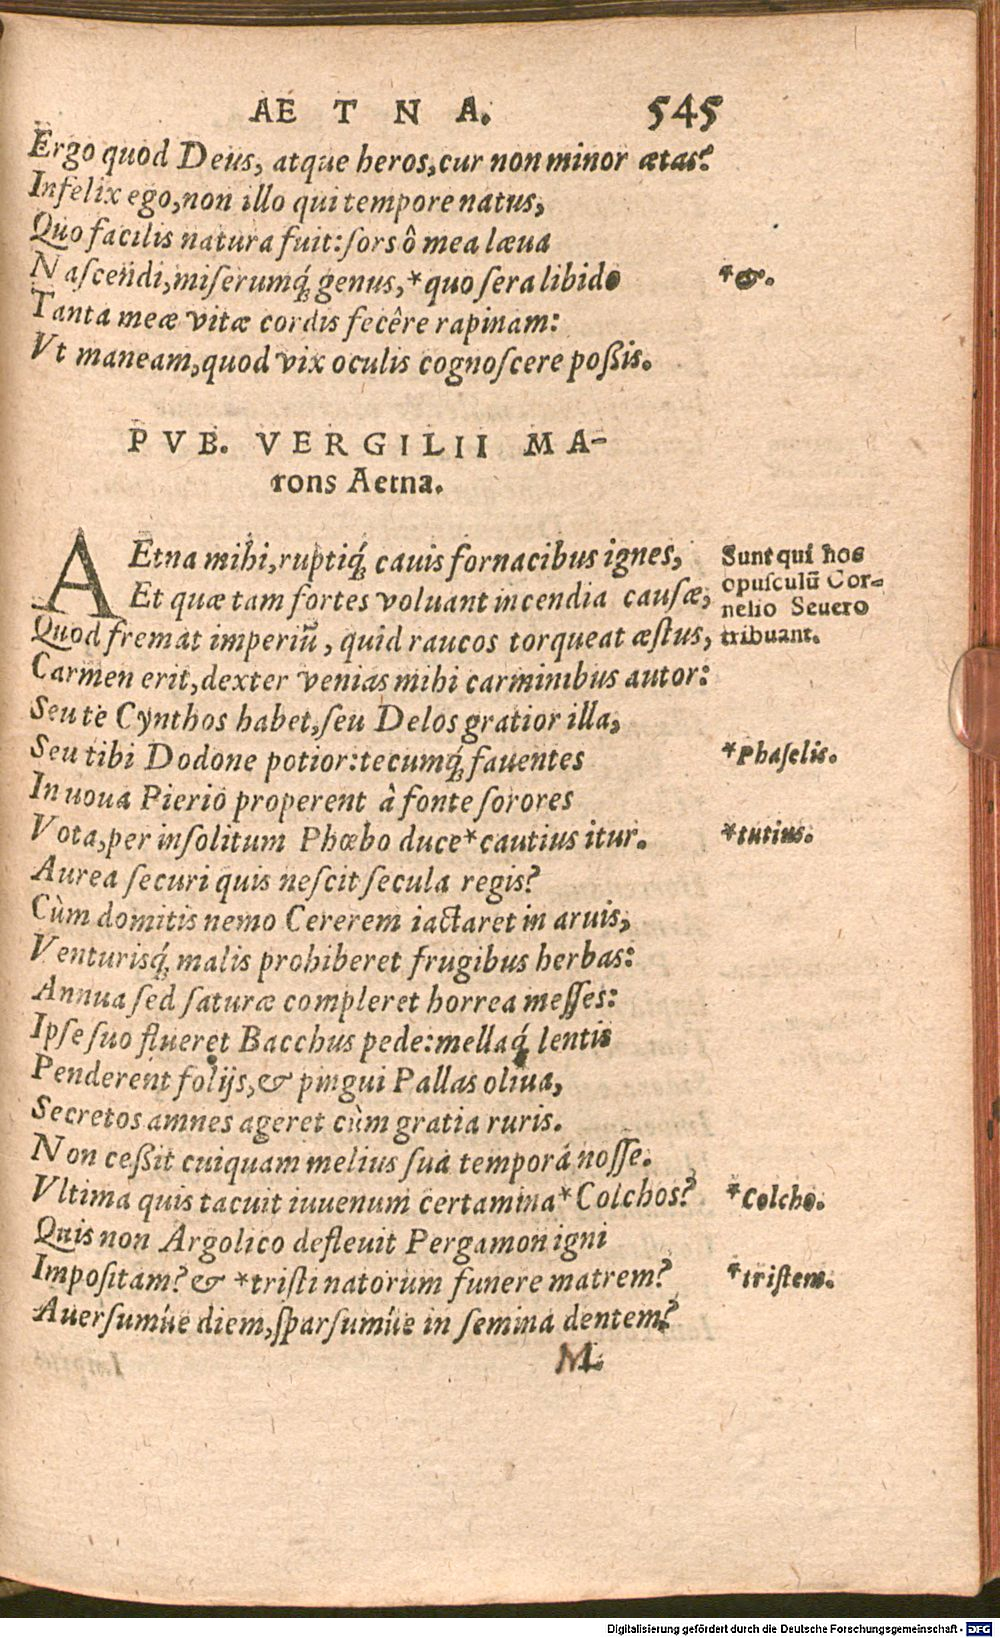 AE T N A. 545
Ergo quod Deus, atque heros, cur non minor ætas?
Infelix ego, non illo qui tempore natus,
Quo facilis natura fuit: ſors ô mea læua
Naſcendi, miſerumq́; genus, *quo ſera libido *&.
Tanta meæ vitæ cordis fecêre rapinam:
Vt maneam, quod vix oculis cognoſcere poßis.
PVB. VERGILII MA-
rons Aetna.
AEtna mihi, ruptiq́; cauis fornacibus ignes,
Et quæ tam fortes voluant incendia cauſæ,
Quod fremat imperiū, quid raucos torqueat æſtus,
Carmen erit, dexter venias mihi carminibus autor:
Seu te Cynthos habet, ſeu Delos gratior illa,
Seu tibi Dodone potior: tecumq́; fauentes
In uoua Pierio properent à fonte ſorores
Vota, per inſolitum Phœbo duce *cautius itur.
Aurea ſecuri quis neſcit ſecula regis?
Cùm domitis nemo Cererem iactaret in aruis,
Venturisq́; malis prohiberet frugibus herbas:
Annua ſed ſaturæ compleret horrea meſſes:
Ipſe ſuo flueret Bacchus pede: mellaq́; lentis
Penderent folijs, & pingui Pallas oliua,
Secretos amnes ageret cùm gratia ruris.
Non ceßit cuiquam melius ſua tempora noſſe.
Vltima quis tacuit iuuenum certamina *Colchos?
Quis non Argolico defleuit Pergamon igni
Impoſitam? & *triſti natorum funere matrem?
Auerſumúe diem, ſparſumúe in ſemina dentem?
M.
Sunt qui hos
opuſculū Cor-
nelio Seuero
tribuant.
*Phaſelis.
*tutius.
*Colcho.
*triſtem.
Digitalisierung gefördert durch die Deutsche Forschungsgemeinschaft - DFG